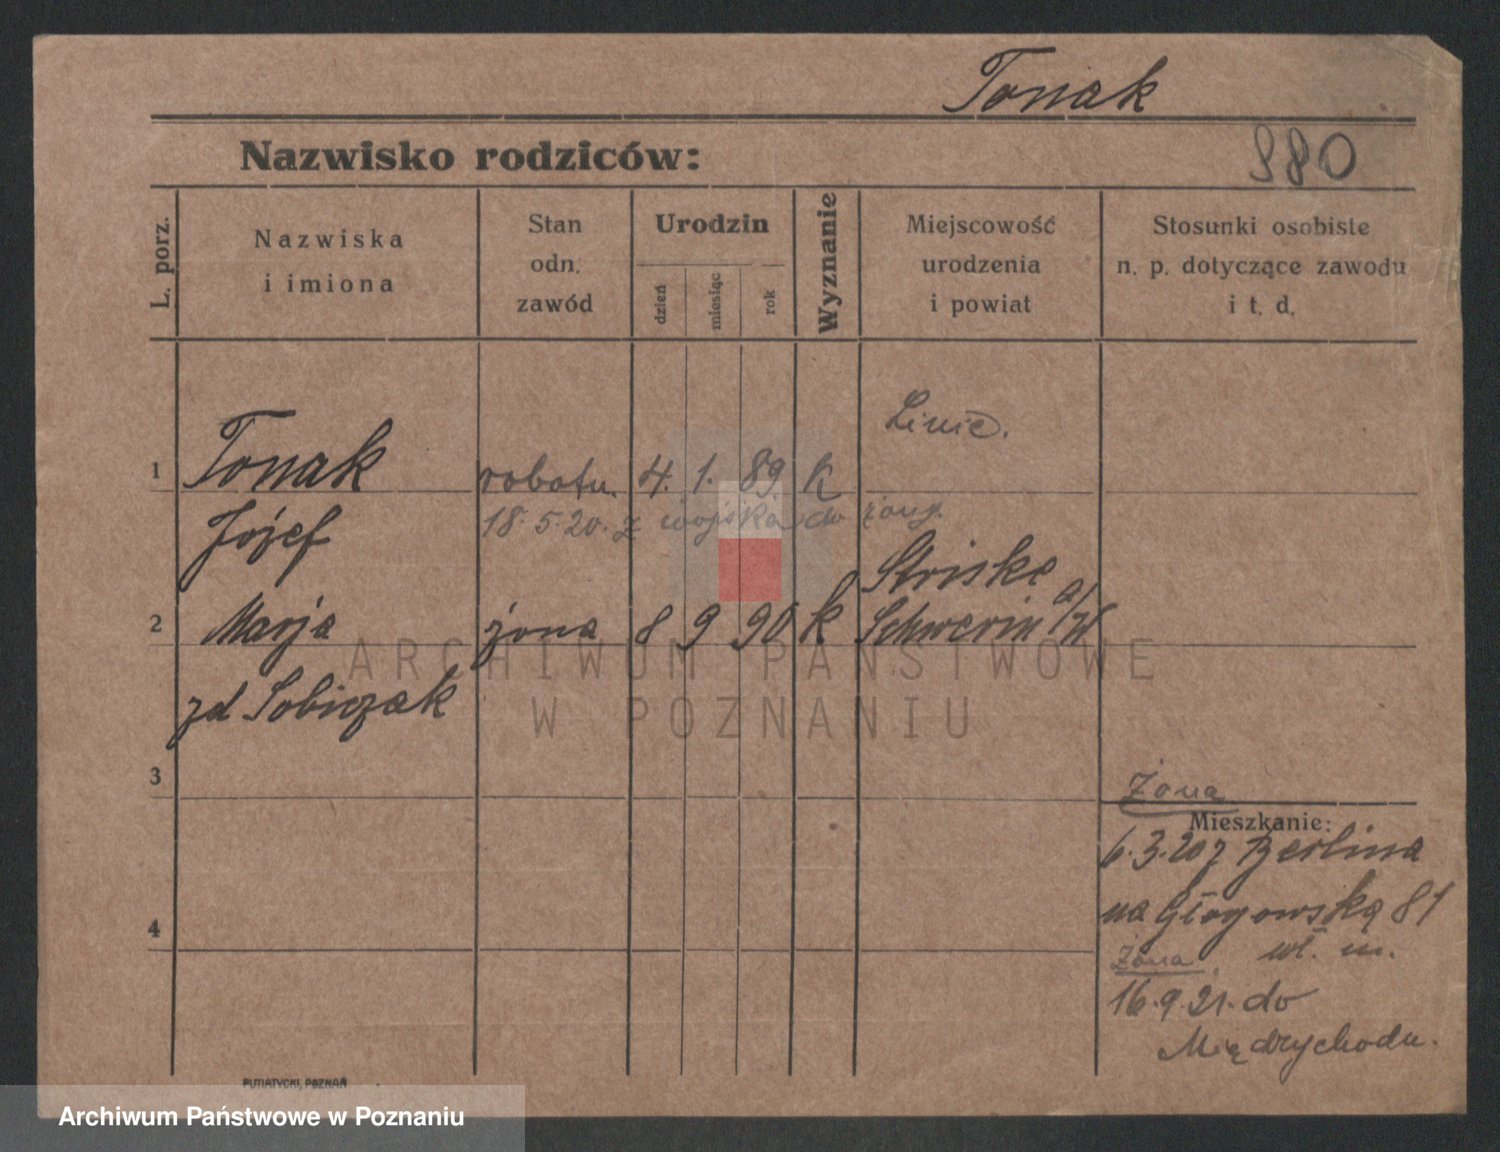 Tonak
Nazwisko rodziców:
980
L. porz.
Nazwiska
i imiona
Stan
odn.
zawód
Urodzin
dzień
miesiąc
rok
Wyznanie
Miejscowość
urodzenia
i powiat
Stosunki osobiste
n. p. dotyczące zawodu
i t. d.
Linie.
1 Tonak robotn. 4. 1. 89 k
Józef 18.5.20. z wojska do żony.
Striske
2 Marja żona 8 9 90 k Schwerin a/W
zd Sobiczak
3
Żona
Mieszkanie:
6.3.20 z Berlina
na Głogowską 81
4
Żona. wł. m.
16.9.21. do
Międzychodu.
PUTIATYCKI, POZNAŃ
ARCHIWUM PAŃSTWOWE
W POZNANIU
Archiwum Państwowe w Poznaniu